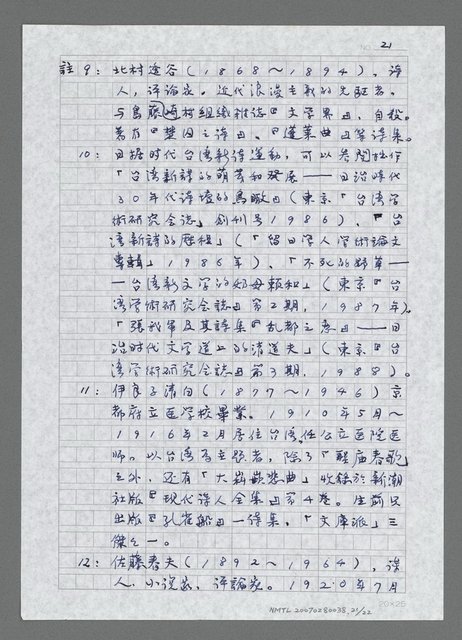 NO. 21
註9：北村透谷（1868～1894），詩
人，評論家。近代浪漫主義的先驅者，
与島藤崎村組織雜誌『文学界』，自殺。
著有『楚囚之詩』、『蓬萊曲』等詩集。
10：日據时代台湾新詩運動，可以参閱拙作
「台湾新詩的萌芽和發展——日治時代
30年代詩壇的鳥瞰」（東京『台湾学
術研究会誌』創刊号1986），「台
湾新詩的歷程」（『留日学人学術論文
專輯』1986年），「不死的野草—
—台湾新文学的奶母賴和」（東京『台
湾学術研究会誌』第2期，1987年）。
「張我軍及其詩集『乱都之恋』——日
治时代文学道上的清道夫」（東京『台
湾学術研究会誌』第3期，1988）。
11：伊良子清白（1877～1946）京
都府立医学校畢業。1910年5月～
1916年2月居住台湾，任公立医院医
師。以台湾為主題者，除了「聖庙春歌」
之外，还有「大嵙崁悲曲」收錄於新潮
社版『現代詩人全集』第4卷。生前只
出版『孔雀船』一詩集，「文庫派」三
傑之一。
12：佐藤春夫（1892～1964），詩
人、小說家、評論家。1920年7月
20×25
NMTL 20070280038 21/22